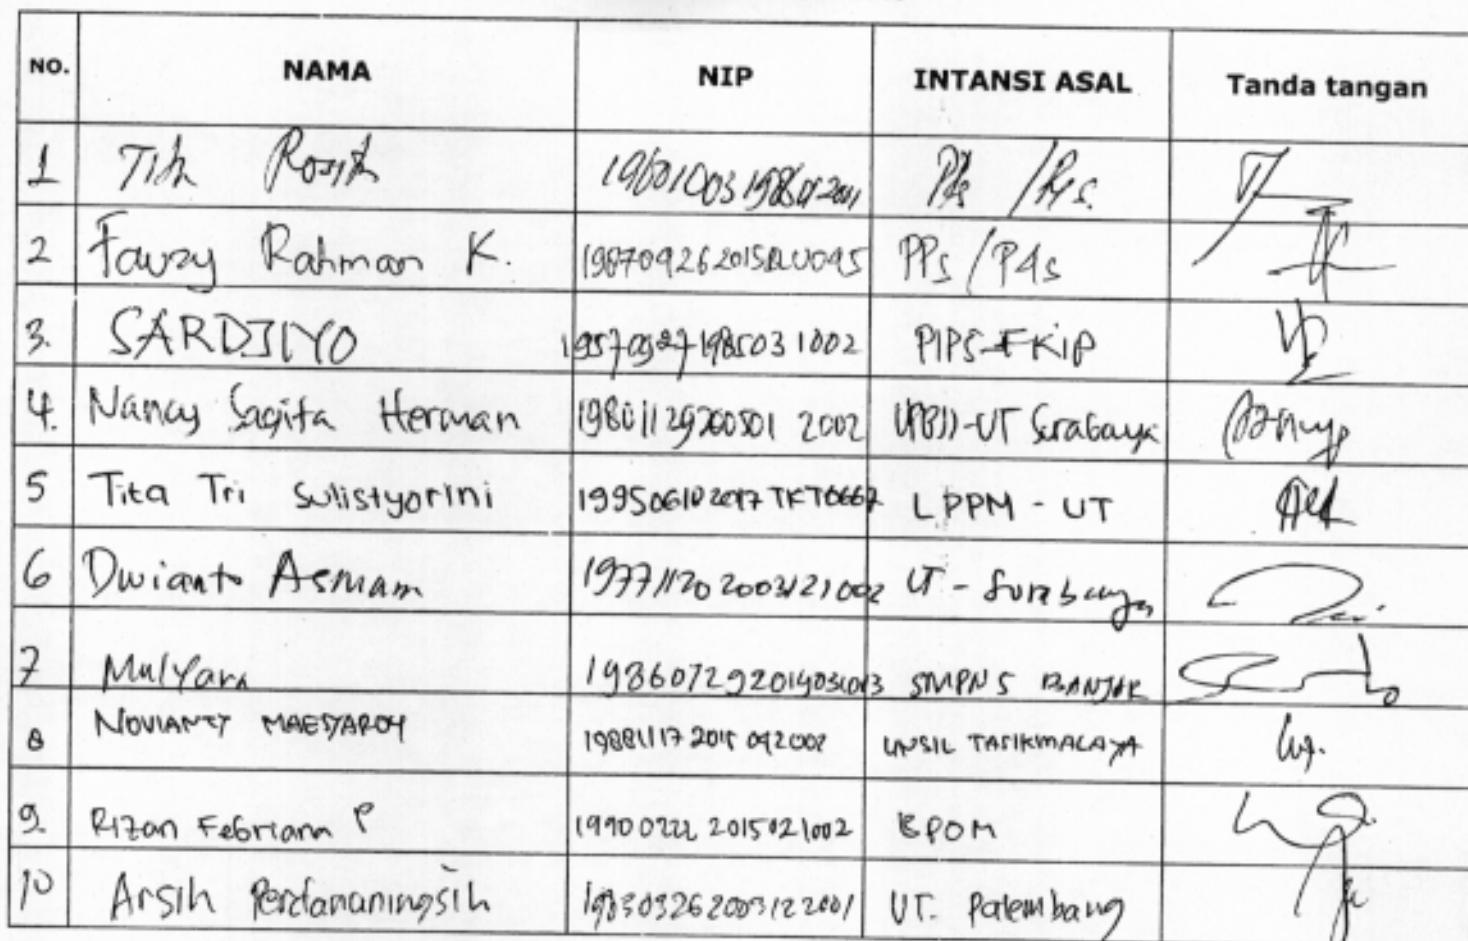 NO. NAMA NIP INTANSI ASAL Tanda tangan
1 Rosita
2 Fauzy Rahman K. PPs / P4s
3. SARDJIYO 195709271985031002 PIPS-FKIP
4. Nancy Sagita Herman 19801129200501 2002 UPBJJ-UT Surabaya
5 Tita Tri Sulistyorini LPPM - UT
6 Dwianto Asmam 19771120 2003121002 UT - Surabaya
7 Mulyara 198607292014031013 SMPN 5 BANJAR
8 NOVIANTY 19881117 2015 092002 UNSIL TASIKMALAYA
9. Rizan Febriana P 19900222 2015021002 BPOM
10 Arsih Perdananingsih 198303262003122001 UT. Palembang